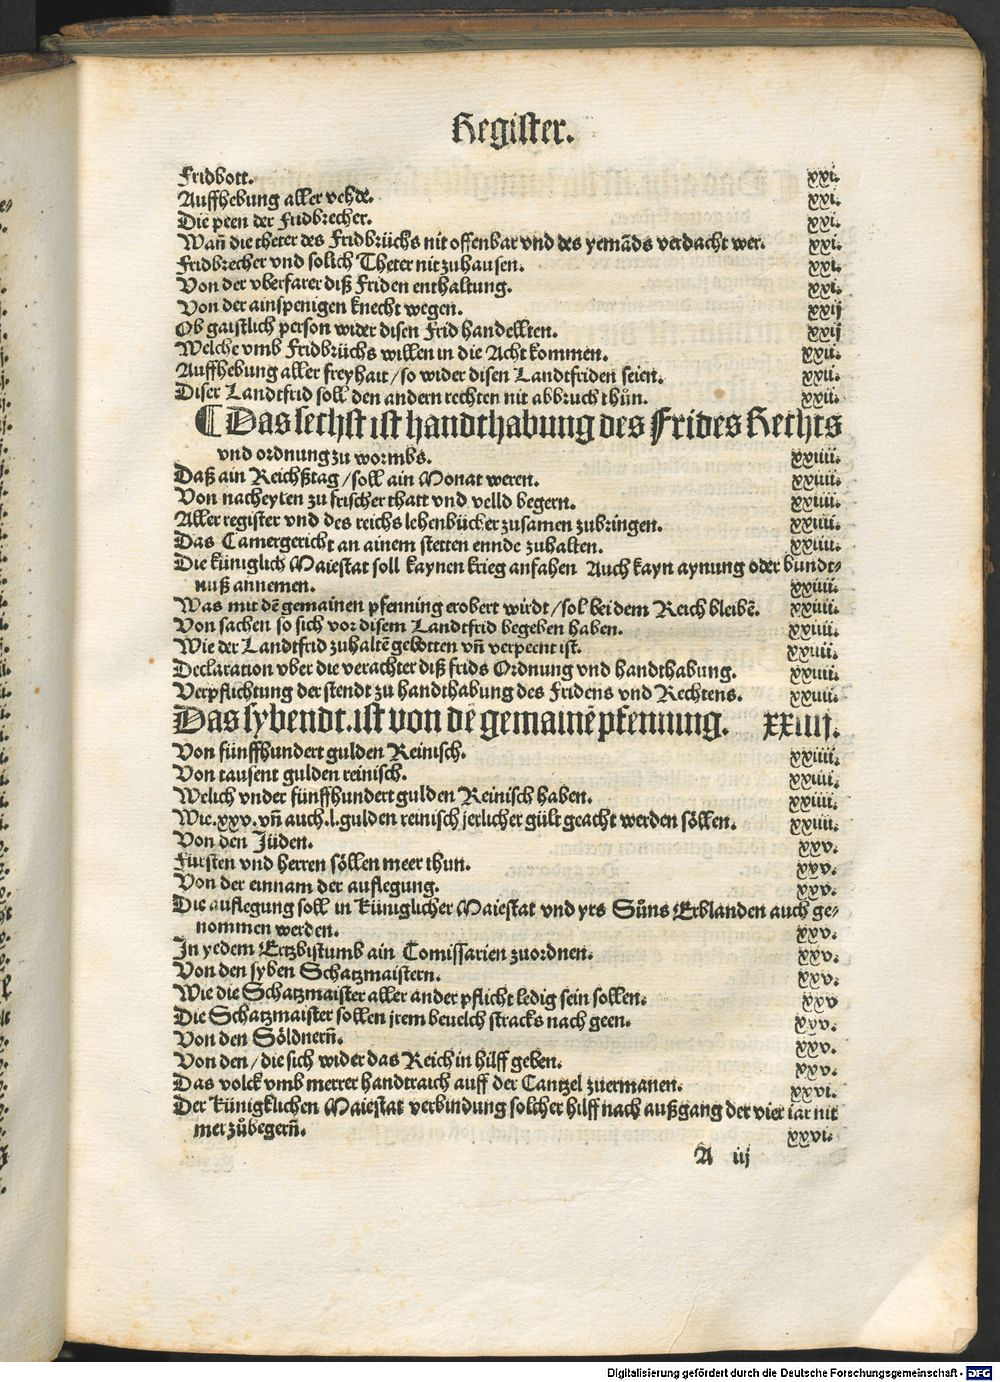 Register.
Fridbott. xxi.
Auffhebung aller vehde. xxi.
Die peen der Fridbrecher. xxi.
Wañ die theter des Fridbrüchs nit offenbar vnd des yemãds verdacht wer. xxi.
Fridbrecher vnd solich Theter nit zuhausen. xxi.
Von der vberfarer diß Friden enthaltung. xxi.
Von der ainspenigen knecht wegen. xxij
Ob gaistlich person wider disen Frid handellten. xxij
Welche vmb Fridbrüchs willen in die Acht kommen. xxii.
Auffhebung aller freyhait / so wider disen Landtfriden seien. xxii.
Diser Landtfrid soll den andern rechten nit abbruch thůn. xxii.
¶ Das sechst ist handthabung des Frides Rechts
vnd ordnung zu wormbs. xxiiii.
Daß ain Reichßtag / soll ain Monat weren. xxiiii.
Von nacheylen zu frischer thatt vnd velld begern. xxiiii.
Aller register vnd des reichs lehenbücher zusamen zubringen. xxiiii.
Das Camergericht an ainem stetten ennde zuhalten. xxiiii.
Die küniglich Maiestat soll kaynen krieg anfahen Auch kayn aynung oder bundt-
nuß annemen. xxiiii.
Was mit dẽ gemainen pfenning erobert wirdt / sol bei dem Reich bleibẽ. xxiiii.
Von sachen so sich vor disem Landtfrid begeben haben. xxiiii.
Wie der Landtfrid zuhaltẽ gebotten vñ verpeent ist. xxiiii.
Declaration vber die verachter diß frids Ordnung vnd handthabung. xxiiii.
Verpflichtung der stendt zu handthabung des Fridens vnd Rechtens. xxiiii.
Das sybendt. ist von dẽ gemainẽ pfenning. xxiiij.
Von fünffhundert gulden Reinisch. xxiiii.
Von tausent gulden reinisch. xxiiii.
Welich vnder fünffhundert gulden Reinisch haben. xxiiii.
Wie .xxv. vñ auch .l. gulden reinisch jerlicher gült geacht werden söllen. xxiiii.
Von den Jüden. xxv.
Fürsten vnd herren söllen meer thun. xxv.
Von der einnam der auflegung. xxv.
Die auflegung soll in küniglicher Maiestat vnd yrs Sůns Erblanden auch ge-
nommen werden. xxv.
In yedem Ertzbistumb ain Comissarien zuordnen. xxv.
Von den syben Schatzmaistern. xxv.
Wie die Schatzmaister aller ander pflicht ledig sein sollen. xxv
Die Schatzmaister sollen jrem beuelch stracks nach geen. xxv.
Von den Söldnerñ. xxv.
Von den / die sich wider das Reich in hilff geben. xxv.
Das volck vmb merrer handtraich auff der Cantzel zuermanen. xxvi.
Der künigklichen Maiestat verbindung solcher hilff nach außgang der vier iar nit
mer zůbegerñ. xxvi.
A iij
Digitalisierung gefördert durch die Deutsche Forschungsgemeinschaft - DFG